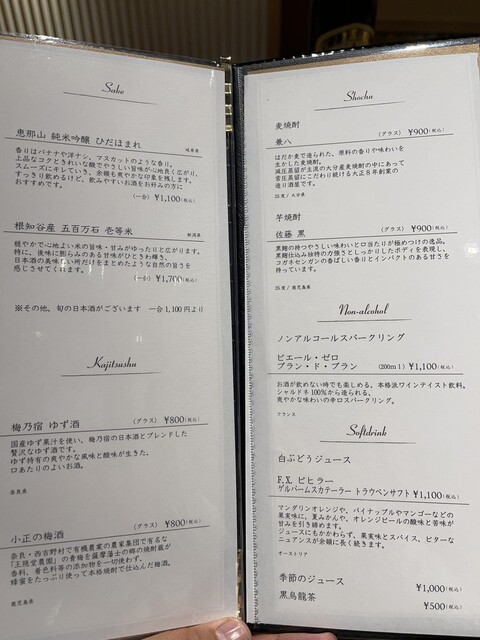 Sake
恵那山 純米吟醸 ひだほまれ
岐阜県
香りはバナナや洋ナシ、マスカットのような香り。
上品なコクときれいな酸でやさしい旨味が心地良く広がり、
スムーズにキレていき、余韻も爽やかな印象を残します。
すっきり飲めるけど、飲みやすいお酒をお好みの方に
おすすめです。
(一合) ¥1,100(税込)
根知谷産 五百万石 壱等米
新潟県
穏やかで心地よい米の旨味・甘みがゆったりと広がります。
特に、後味に膨らみのある甘味がひときわ輝き、
日本酒の美味しい所だけをまとめたような自然の旨さを
感じさせてくれます。
(一合) ¥1,700(税込)
※その他、旬の日本酒がございます 一合1,100円より
Kajitsushu
梅乃宿 ゆず酒
(グラス) ¥800(税込)
国産ゆず果汁を使い、梅乃宿の日本酒とブレンドした
贅沢なゆず酒です。
ゆず特有の爽やかな風味と酸味が生きた、
口あたりのよいお酒。
奈良県
小正の梅酒
(グラス) ¥800(税込)
奈良・西吉野村で有機農業の農家集団で有名な
「王隠堂農園」の青梅を薩摩藩士の郷の焼酎蔵が
香料、着色料等の添加物を一切使わず、
蜂蜜をたっぷり使って本格焼酎で仕込んだ梅酒。
鹿児島県
Shochu
麦焼酎
兼八
(グラス) ¥900(税込)
はだか麦で造られた、原料の香りや味わいを
生かした麦焼酎。
減圧蒸留が主流の大分産麦焼酎の中にあって
常圧蒸留にこだわり続ける大正8年創業の
造り酒屋です。
25度/大分県
芋焼酎
佐藤 黒
(グラス) ¥900(税込)
黒麹の持つやさしい味わいと口当たりが極めつけの逸品。
黒麹仕込み独特の力強さとしっかりしたボディを表現し、
コガネセンガンの香ばしい香りとインパクトのある甘さを
持っています。
25度/鹿児島県
Non-alcohol
ノンアルコールスパークリング
ピエール・ゼロ
ブラン・ド・ブラン (200ml) ¥1,100(税込)
お酒が飲めない時でも楽しめる、本格派ワインテイスト飲料。
シャルドネ100%から造られる、
爽やかな味わいの辛口スパークリング。
フランス
Softdrink
白ぶどうジュース
F.X. ピヒラー
ゲルバームスカテーラー トラウベンサフト ¥1,100(税込)
マンダリンオレンジや、パイナップルやマンゴーなどの
果実味に、夏みかんや、オレンジピールの酸味と苦味が
甘みを引き締めます。
ジュースにもかかわらず、果実味とスパイス、ビターな
ニュアンスが余韻に長く続きます。
オーストリア
季節のジュース
¥1,000(税込)
黒烏龍茶
¥500(税込)